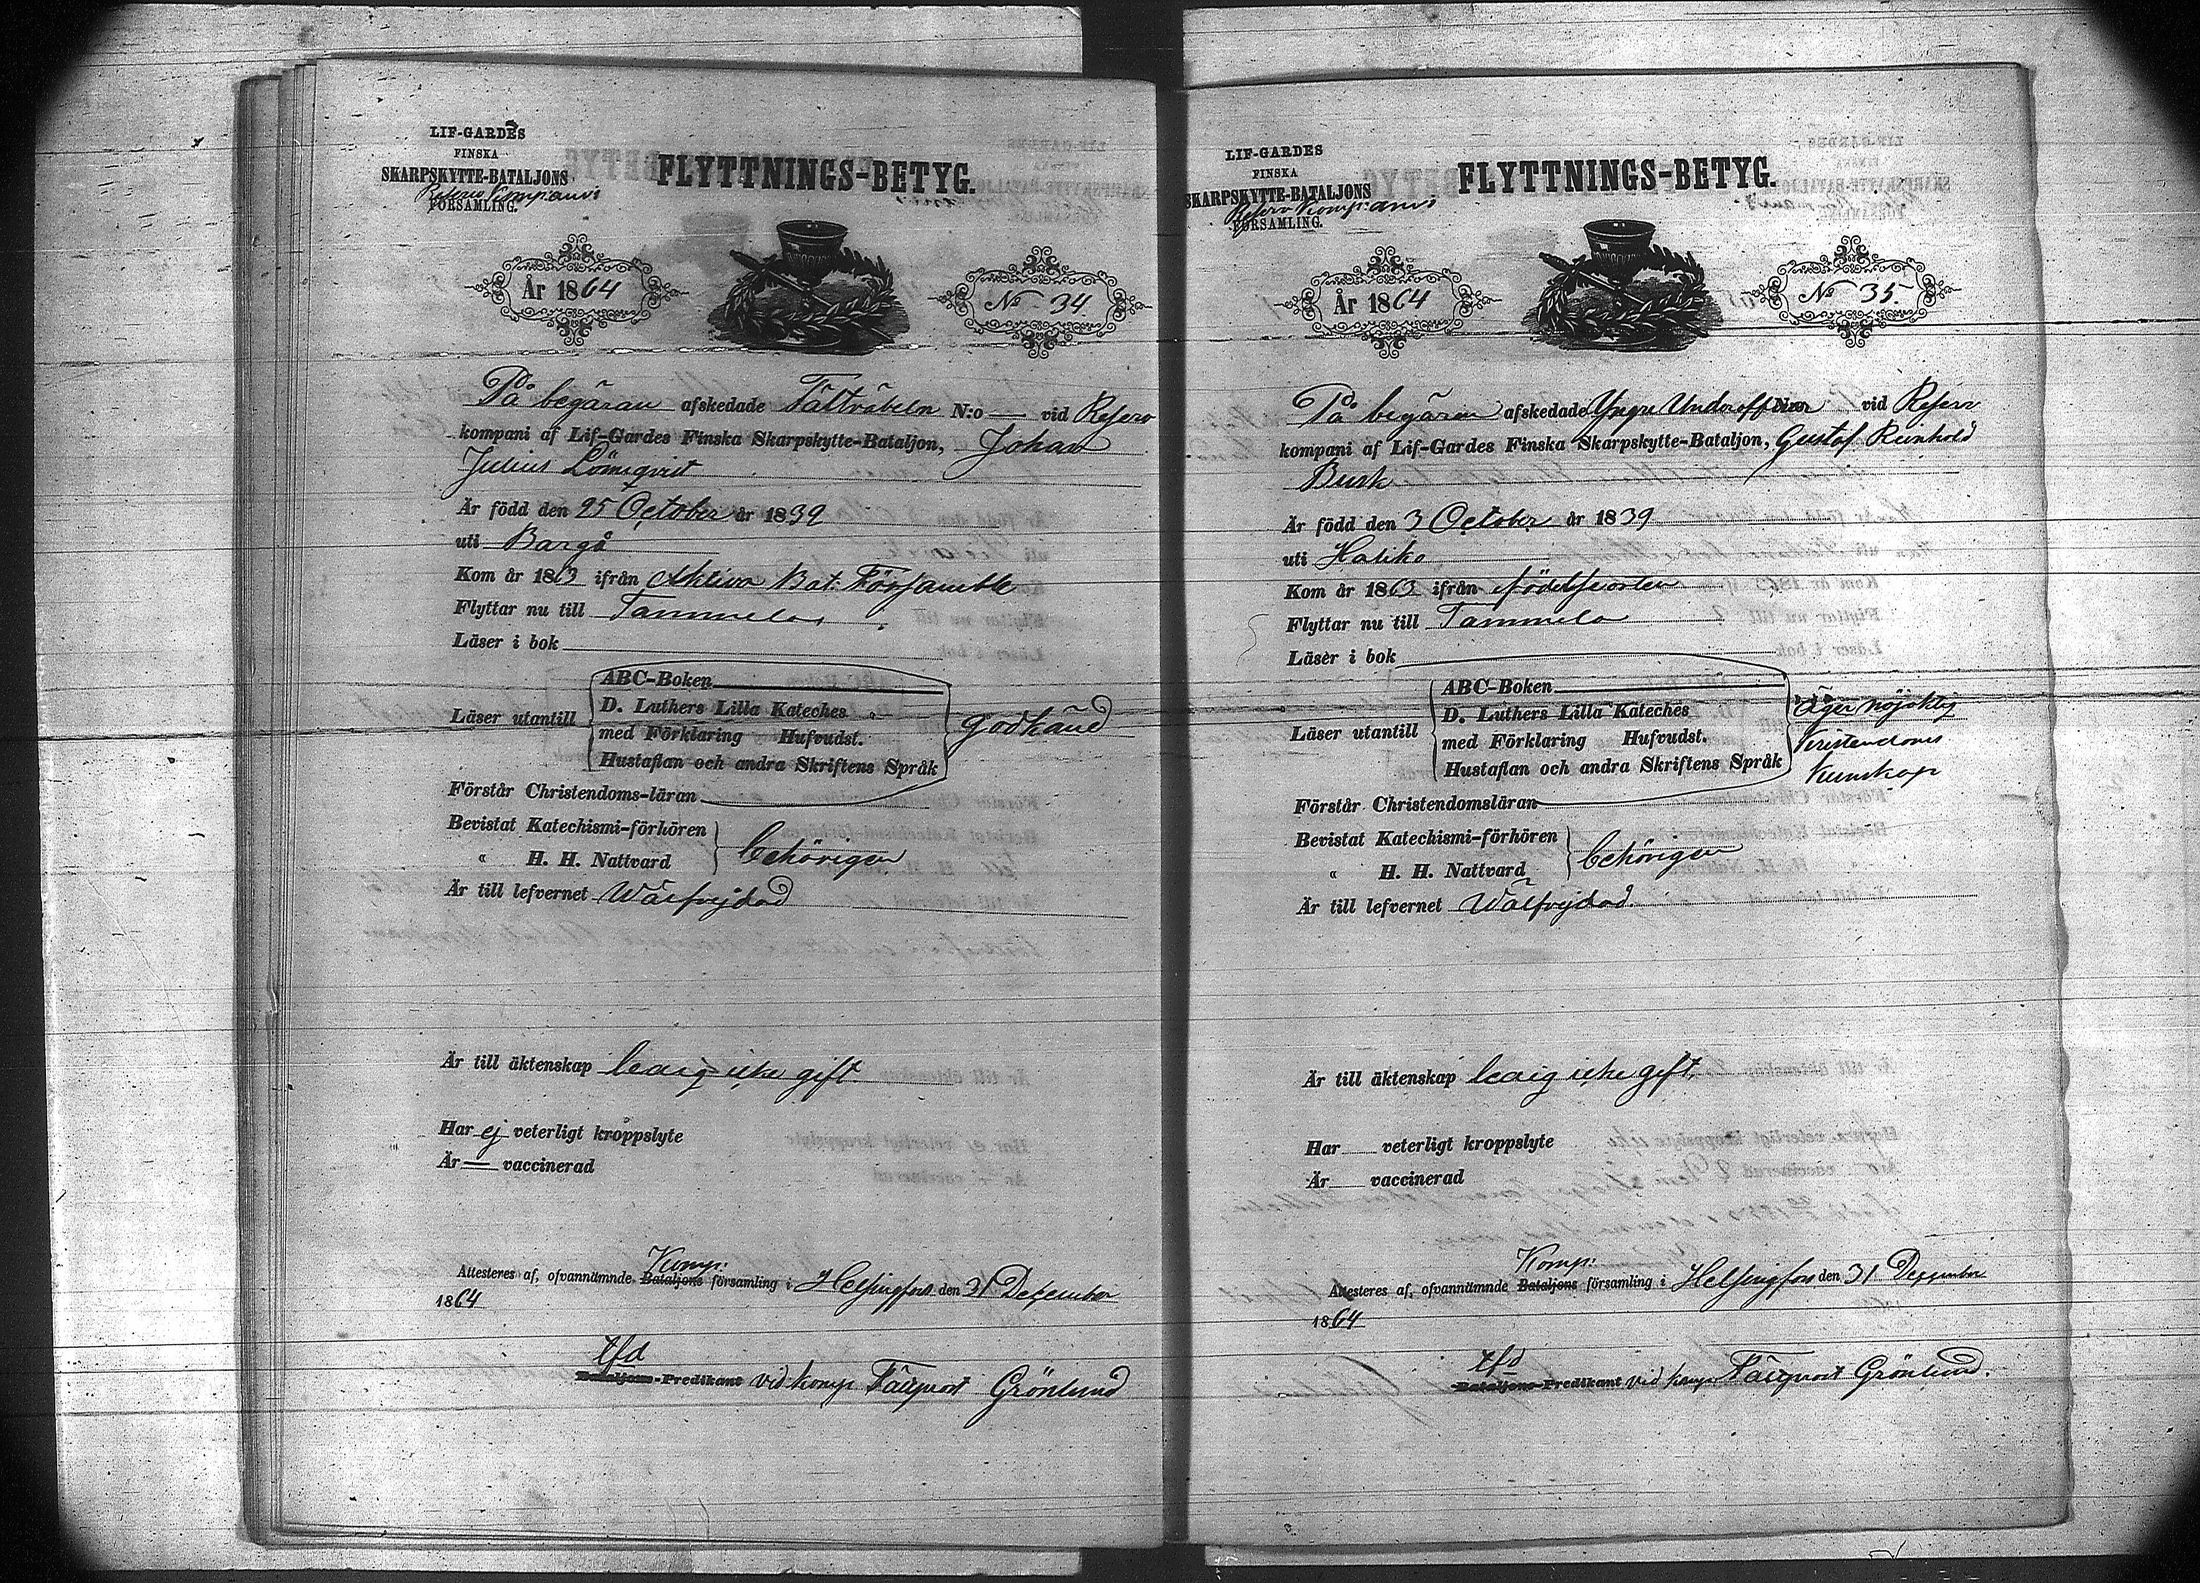 LIF-GARDES
FINSKA
SKARPSKYTTE-BATALJONS
Reserv Kompanis
FÖRSAMLING.
FLYTTNINGS-BETYG.
År 1864
No 34.
På begäran afskedade Fältväbeln N:o — vid Reserv
kompani af Lif-Gardes Finska Skarpskytte-Bataljon, Johan
Julius Lönnqvist
Är född den 25 October år 1839
uti Borgå
Kom år 1863 ifrån Aktiva Bat. Församtle
Flyttar nu till Tammela
Läser i bok
Läser utantill
ABC-Boken
D. Luthers Lilla Kateches "
med Förklaring Hufvudst.
Hustaflan och andra Skriftens Språk
godkänd
Förstår Christendoms-läran
Bevistat Katechismi-förhören
" H. H. Nattvard
behörigen
Är till lefvernet Wälfrejdad
Är till äktenskap ledig icke gift.
Har ej veterligt kroppslyte
Är — vaccinerad
Komp:
Attesteres af, ofvannämnde Bataljons församling i Helsingfors den 31 December
1864
tfd
Bataljons-Predikant vid Komp. Grönlund
LIF-GARDES
FINSKA
SKARPSKYTTE-BATALJONS
Reserv Kompanis
FÖRSAMLING.
FLYTTNINGS-BETYG.
År 1864
No 35.
På begäran afskedade Yngre Underoff N:o vid Reserv
kompani af Lif-Gardes Finska Skarpskytte-Bataljon, Gustaf Reinhold
Busk
Är född den 3 October år 1839
uti Haliko
Kom år 1863 ifrån födelseorten
Flyttar nu till Tammela
Läser i bok
Läser utantill
ABC-Boken
D. Luthers Lilla Kateches
med Förklaring Hufvudst.
Hustaflan och andra Skriftens Språk
Äger nöjaktig
Kristendoms
Kunskap
Förstår Christendomsläran
Bevistat Katechismi-förhören
" H. H. Nattvard
behörigen
Är till lefvernet Wälfrejdad.
Är till äktenskap ledig icke gift.
Har veterligt kroppslyte
Är vaccinerad
Komp:
Attesteres af, ofvannämnde Bataljons församling i Helsingfors den 31 December
1864
tfd
Bataljons-Predikant vid Komp. Grönlund.